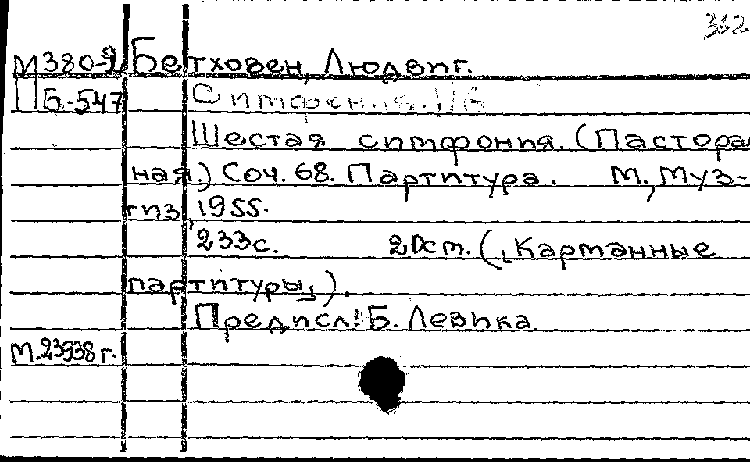 332
М380-2 Бетховен, Людвиг.
П Б-547 Симфония. №6
Шестая симфония. (Пастораль
ная) Соч. 68. Партитура. М., Муз-
гиз, 1955.
233с. 20см. („Карманные
партитуры„).
Предисл: Б. Левика
М.23938г.